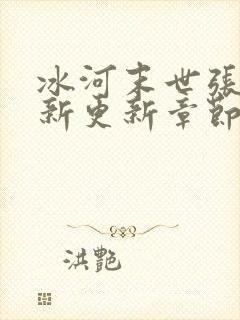 冰河末世張
新更新章節
洪艷